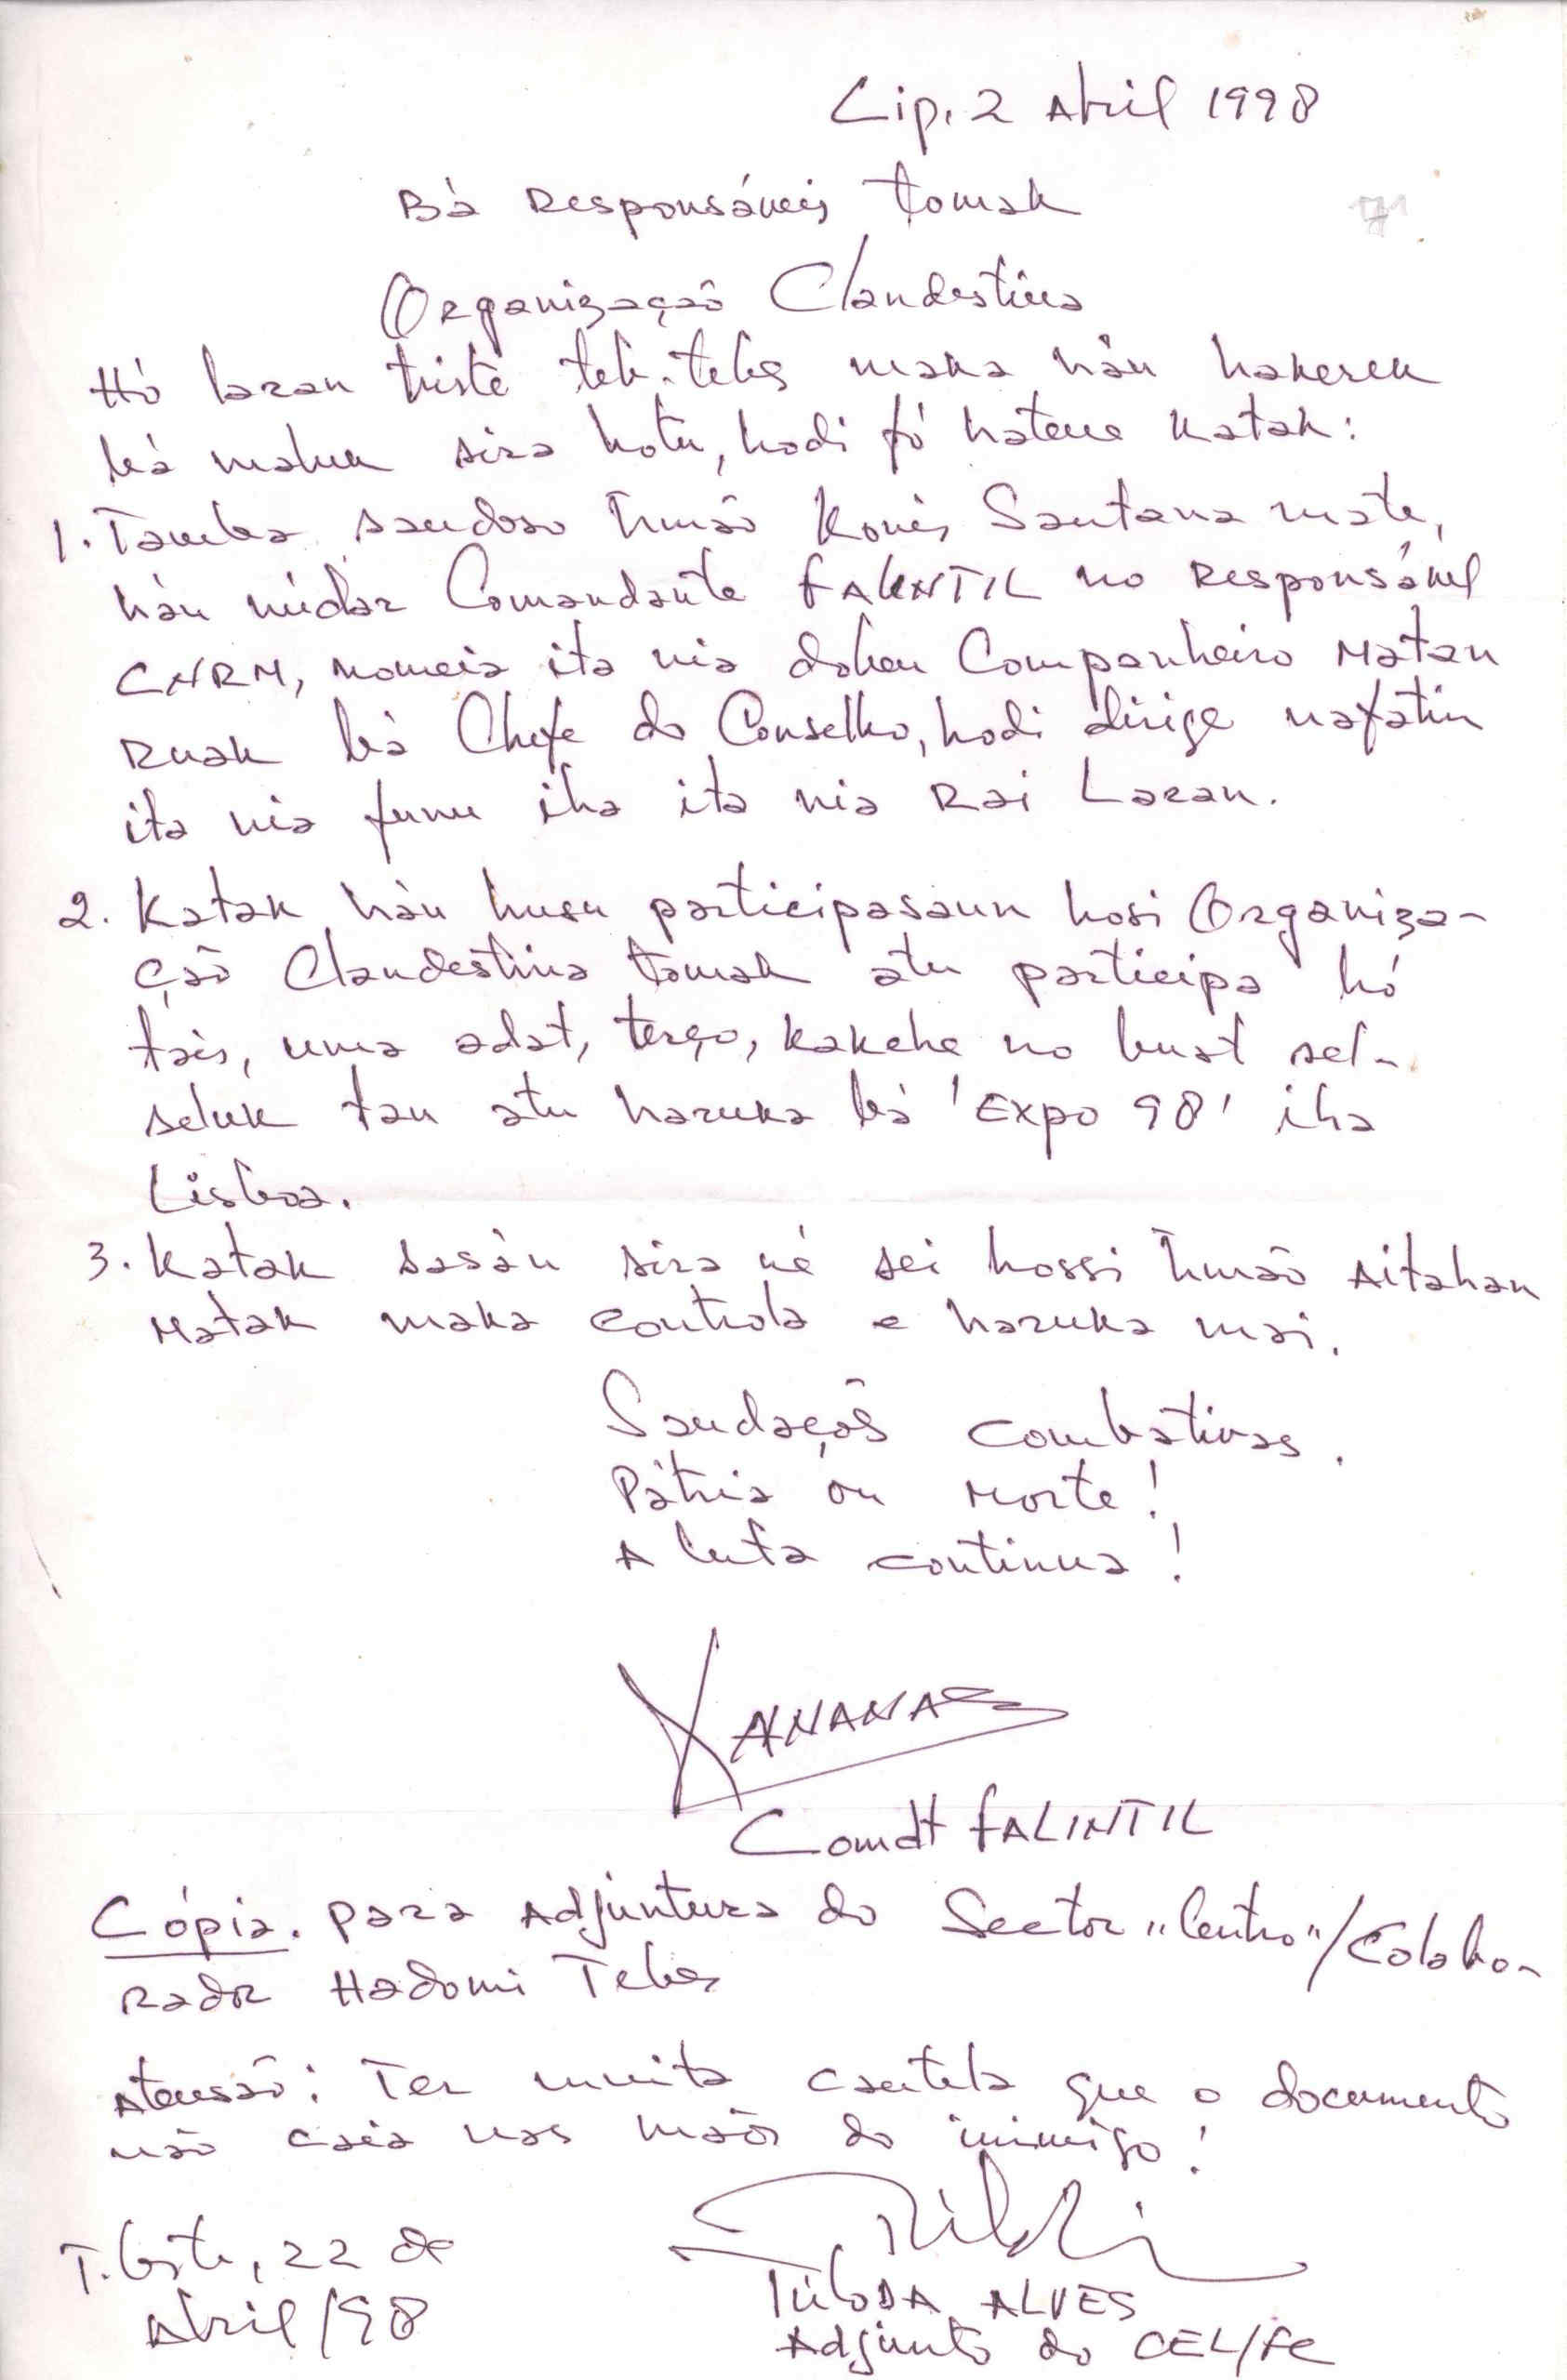 Cip, 2 Abril 1998
Bá Responsáveis tomak
Organização Clandestina
Hó laran triste teb-tebes maka háu hakerek
bá maluk sira hotu, hodi fó hatene katak:
1. Tamba saudoso Irmão Konis Santana mate,
háu núdar Comandante FALINTIL no Responsável
CNRM, nomeia ita nia doben Companheiro Matan
Ruak bá Chefe do Conselho, hodi dirige nafatin
ita nia funu iha ita nia Rai Laran.
2. Katak háu husu participasaun hosi Organiza-
ção Clandestina tomak atu participa hó
tais, uma adat, terço, kakehe no buat sel-
seluk tan atu haruka bá 'Expo 98' iha
Lisboa.
3. Katak sasán sira né sei hossi Irmão Aitahan
Matak maka controla e haruka mai.
Saudações combativas.
Pátria ou Morte!
A luta continua!
XANANA
Comdt FALINTIL
Cópia. para Adjuntura do Sector "Centro"/Colabo-
rador Hadomi Tebes
Atensão: Ter muita cautela que o documento
não caia nas mãos do inimigo!
T. Leste, 22 de
Abril/98
ALVES
Adjunto do CEL/FC